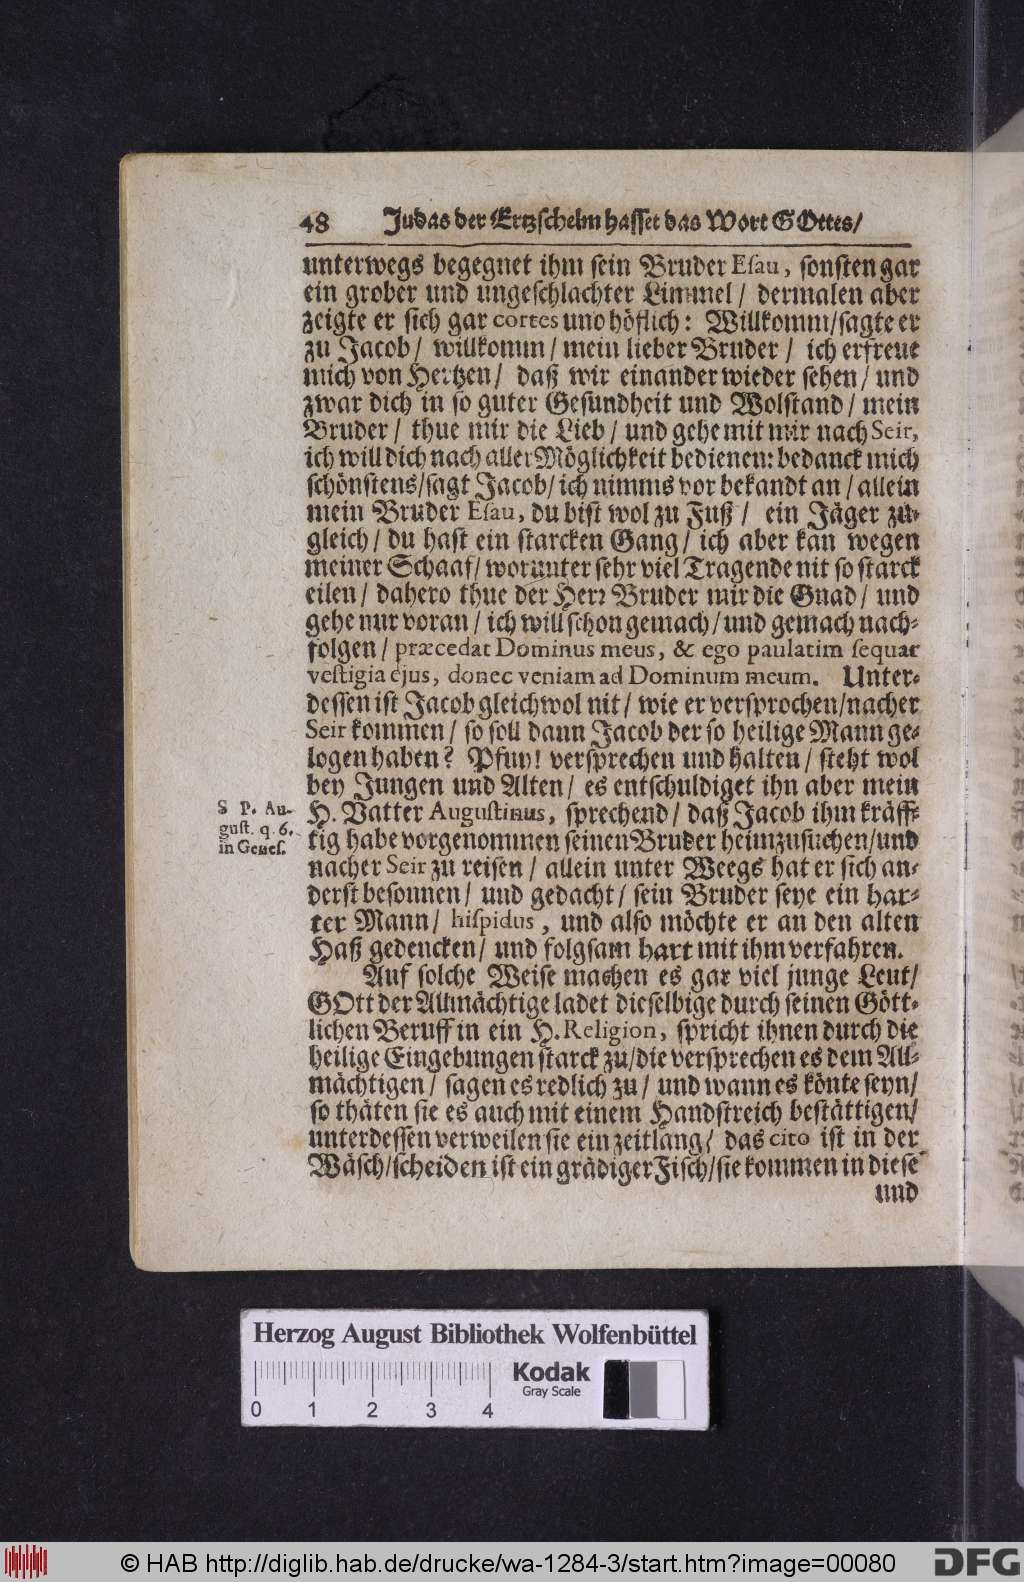 48 Judas der Ertzschelm hasset das Wort GOttes/
unterwegs begegnet ihm sein Bruder Esau, sonsten gar
ein grober und ungeschlachter Limmel/ dermalen aber
zeigte er sich gar cortes und höflich: Willkomm/sagte er
zu Jacob/ willkomm/ mein lieber Bruder/ ich erfreue
mich von Hertzen/ daß wir einander wieder sehen/ und
zwar dich in so guter Gesundheit und Wolstand/ mein
Bruder/ thue mir die Lieb/ und gehe mit mir nach Seir,
ich will dich nach aller Möglichkeit bedienen: bedanck mich
schönstens/sagt Jacob/ ich nimms vor bekandt an/ allein
mein Bruder Esau, du bist wol zu Fuß/ ein Jäger zu-
gleich/ du hast ein starcken Gang/ ich aber kan wegen
meiner Schaaf/ worunter sehr viel Tragende nit so starck
eilen/ dahero thue der Herr Bruder mir die Gnad/ und
gehe nur voran/ ich will schon gemach/ und gemach nach-
folgen/ præcedat Dominus meus, & ego paulatim sequar
vestigia ejus, donec veniam ad Dominum meum. Unter-
dessen ist Jacob gleichwol nit/ wie er versprochen/nacher
Seir kommen/ so soll dann Jacob der so heilige Mann ge-
logen haben? Pfuy! versprechen und halten/ steht wol
bey Jungen und Alten/ es entschuldiget ihn aber mein
S P. Au-
gust. q. 6.
in Genes.
H. Vatter Augustinus, sprechend/ daß Jacob ihm kräff-
tig habe vorgenommen seinen Bruder heimzusuchen/und
nacher Seir zu reisen/ allein unter Weegs hat er sich an-
derst besonnen/ und gedacht/ sein Bruder seye ein har-
ter Mann/ hispidus, und also möchte er an den alten
Haß gedencken/ und folgsam hart mit ihm verfahren.
Auf solche Weise machen es gar viel junge Leut/
GOtt der Allmächtige ladet dieselbige durch seinen Gött-
lichen Beruff in ein H. Religion, spricht ihnen durch die
heilige Eingebungen starck zu/die versprechen es dem All-
mächtigen/ sagen es redlich zu/ und wann es könte seyn/
so thäten sie es auch mit einem Handstreich bestättigen/
unterdessen verweilen sie ein zeitlang/ das cito ist in der
Wäsch/scheiden ist ein grädiger Fisch/sie kommen in diese
und
Herzog August Bibliothek Wolfenbüttel
Kodak
Gray Scale
0 1 2 3 4
© HAB http://diglib.hab.de/drucke/wa-1284-3/start.htm?image=00080
DFG